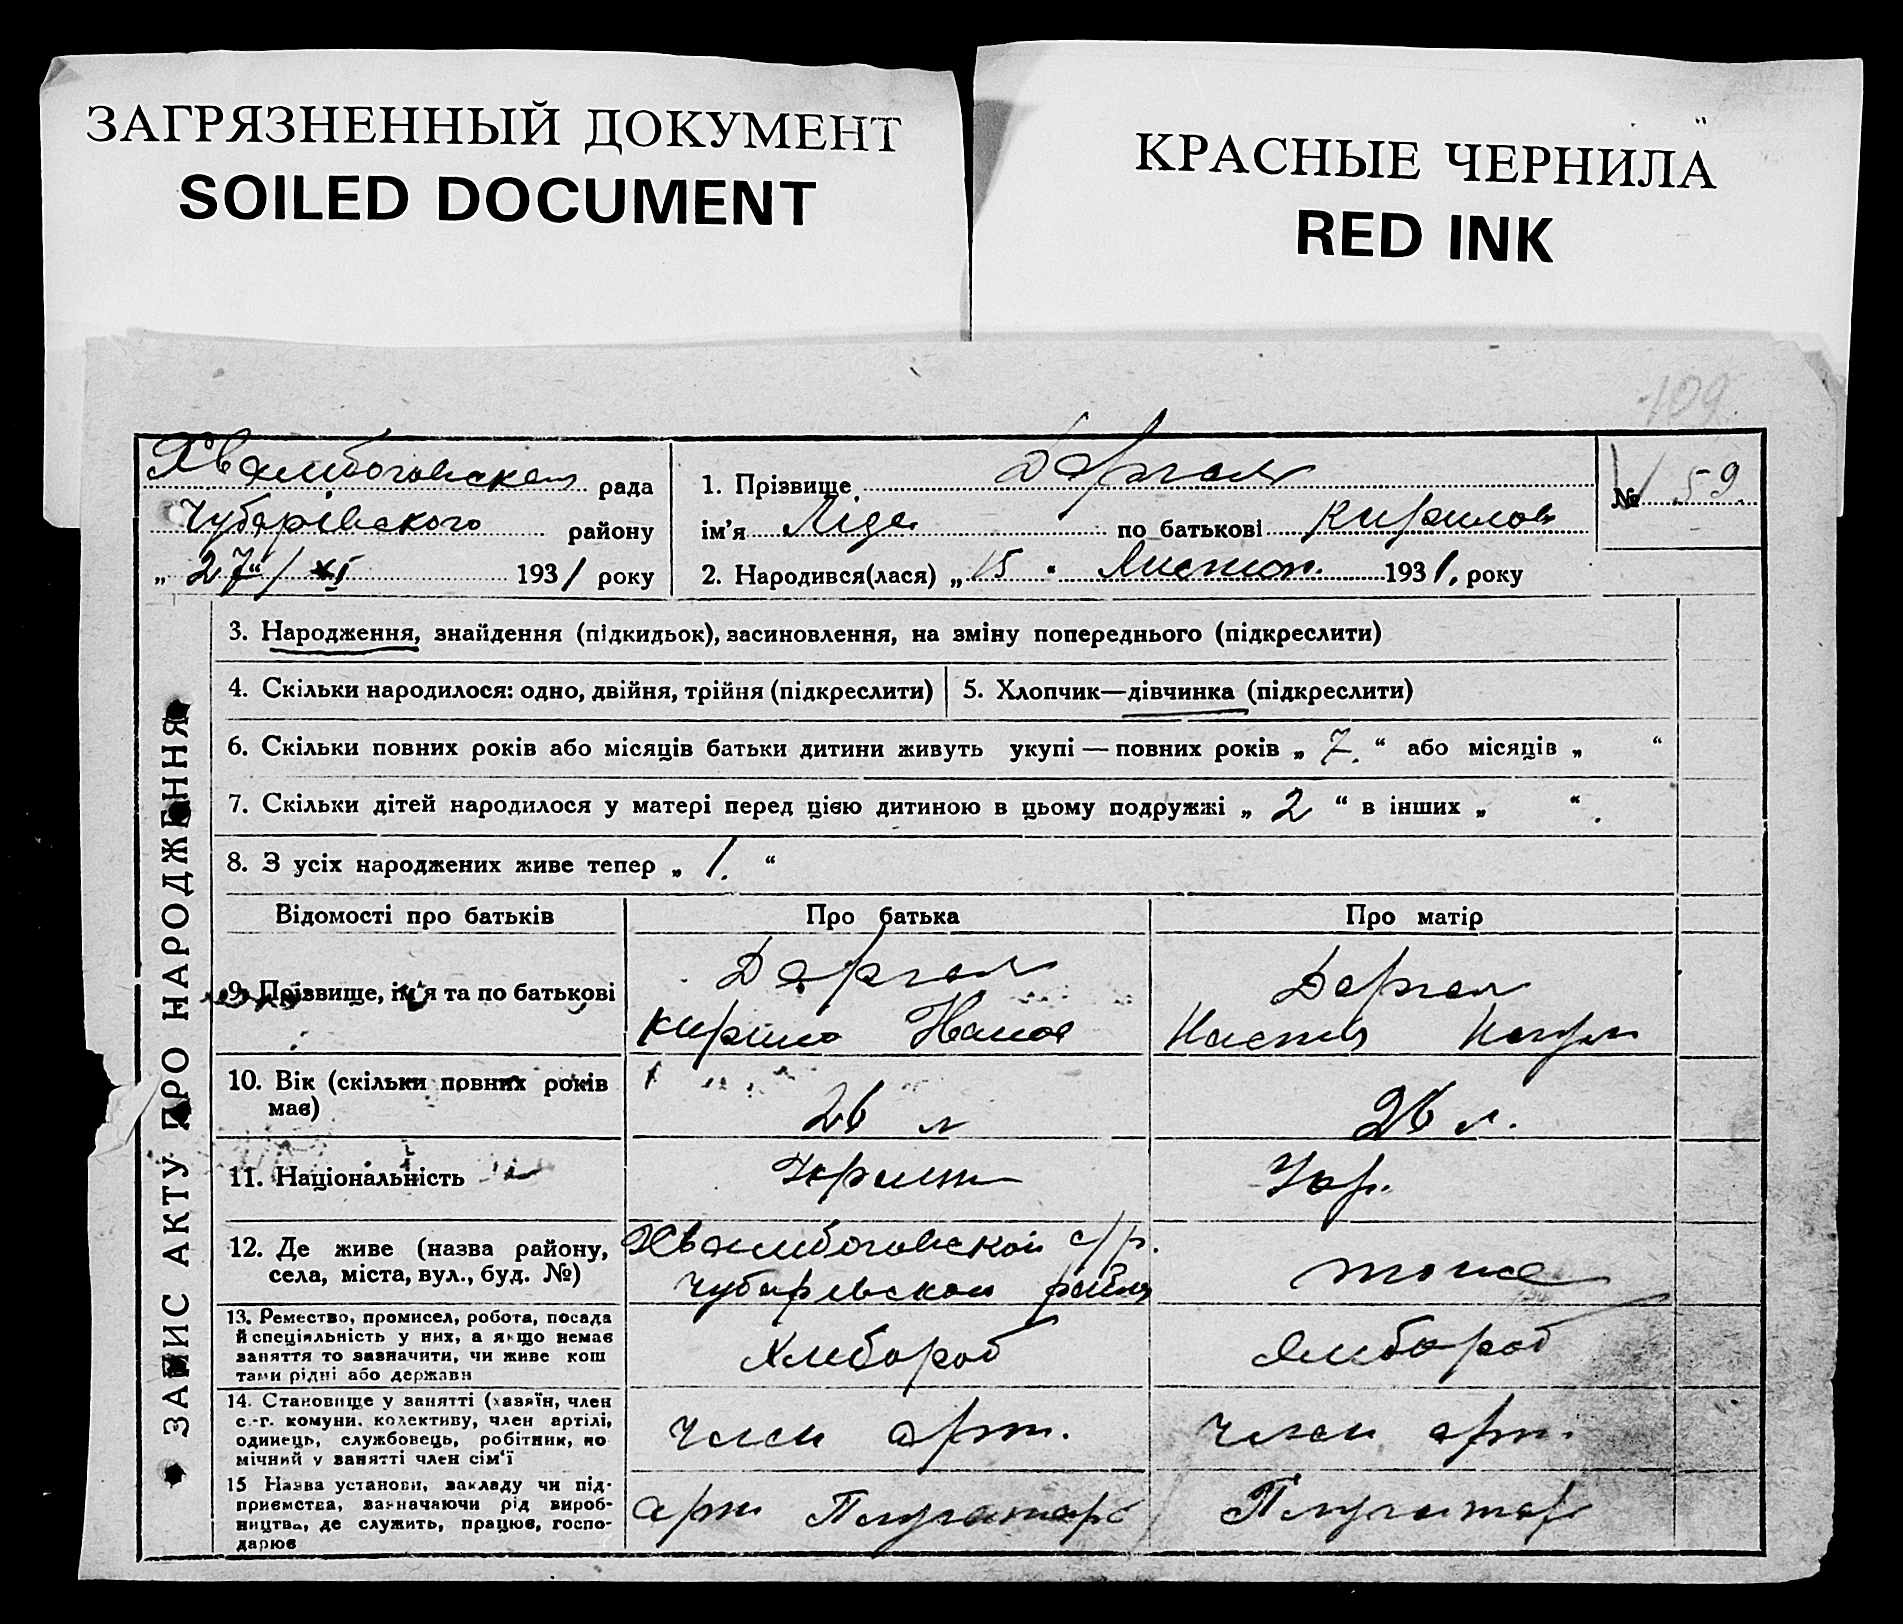 ЗАГРЯЗНЕННЫЙ ДОКУМЕНТ
SOILED DOCUMENT
КРАСНЫЕ ЧЕРНИЛА
RED INK
109
рада
Чубарівського району
„27“/XI 1931 року
1. Прізвище Даргал
ім'я Ліда по батькові Кирилов
2. Народився(лася) „15 " Листоп. 1931. року
№ 59.
ЗАПИС АКТУ ПРО НАРОДЖЕННЯ
3. Народження, знайдення (підкидьок), засиновлення, на зміну попереднього (підкреслити)
4. Скільки народилося: одно, двійня, трійня (підкреслити)
5. Хлопчик—дівчинка (підкреслити)
6. Скільки повних років або місяців батьки дитини живуть укупі — повних років „ 7. “ або місяців „ “
7. Скільки дітей народилося у матері перед цією дитиною в цьому подружжі „ 2 “ в інших „ “.
8. З усіх народжених живе тепер „ 1. “
Відомості про батьків
Про батька
Про матір
9. Прізвище, ім'я та по батькові
Даргал
Кирило Іванов
Даргал
Настя
10. Вік (скільки повних років
має)
26 л
26 л.
11. Національність
Україн
Укр.
12. Де живе (назва району,
села, міста, вул., буд. №)
с/р.
Чубаревском район
тоже
13. Ремество, промисел, робота, посада
й спеціяльність у них, а якщо немає
заняття то зазначити, чи живе кош
тами рідні або держави
Хлибороб
Хлибороб
14. Становище у занятті (хазяїн, член
с.-г. комуни, колективу, член артілі,
одинець, службовець, робітник, по
мічний у занятті член сім'ї
член арт.
член арт.
15 Назва установи, закладу чи під-
приємства, зазначаючи рід вироб-
ництва, де служить, працює, госпо-
дарює
арт Плугатарь
Плугатар